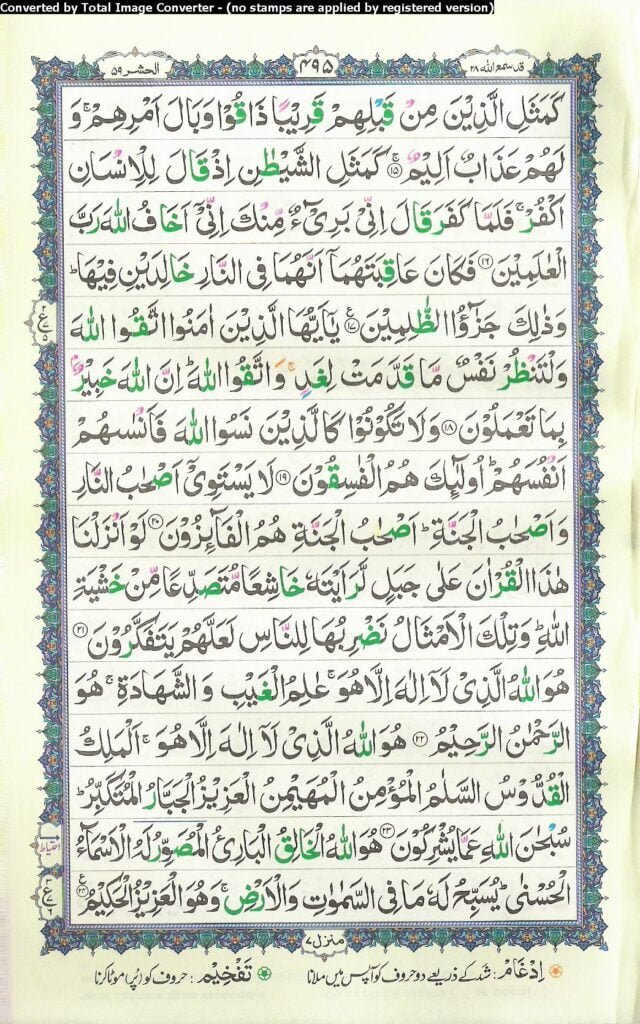 Converted by Total Image Converter - (no stamps are applied by registered version)
قد سمع الله ۲۸
۴۹۵
الحشر ۵۹
كَمَثَلِ الَّذِيْنَ مِنْ قَبْلِهِمْ قَرِيْبًا ذَاقُوْا وَبَالَ اَمْرِهِمْ ۚ وَ
لَهُمْ عَذَابٌ اَلِيْمٌ ۚ ﴿۱۵﴾ كَمَثَلِ الشَّيْطٰنِ اِذْ قَالَ لِلْاِنْسَانِ
اكْفُرْ ۚ فَلَمَّا كَفَرَ قَالَ اِنِّىْ بَرِىْٓءٌ مِّنْكَ اِنِّىْٓ اَخَافُ اللّٰهَ رَبَّ
الْعٰلَمِيْنَ ﴿۱۶﴾ فَكَانَ عَاقِبَتَهُمَاۤ اَنَّهُمَا فِى النَّارِ خَالِدَيْنِ فِيْهَا ؕ
وَذٰلِكَ جَزٰٓؤُا الظّٰلِمِيْنَ ﴿۱۷﴾ يٰۤاَيُّهَا الَّذِيْنَ اٰمَنُوا اتَّقُوا اللّٰهَ
وَلْتَنْظُرْ نَفْسٌ مَّا قَدَّمَتْ لِغَدٍ ۚ وَاتَّقُوا اللّٰهَ ؕ اِنَّ اللّٰهَ خَبِيْرٌۢ
بِمَا تَعْمَلُوْنَ ﴿۱۸﴾ وَلَا تَكُوْنُوْا كَالَّذِيْنَ نَسُوا اللّٰهَ فَاَنْسٰىهُمْ
اَنْفُسَهُمْ ؕ اُولٰٓئِكَ هُمُ الْفٰسِقُوْنَ ﴿۱۹﴾ لَا يَسْتَوِىْۤ اَصْحٰبُ النَّارِ
وَاَصْحٰبُ الْجَنَّةِ ؕ اَصْحٰبُ الْجَنَّةِ هُمُ الْفَآئِزُوْنَ ﴿۲۰﴾ لَوْ اَنْزَلْنَا
هٰذَا الْقُرْاٰنَ عَلٰى جَبَلٍ لَّرَاَيْتَهٗ خَاشِعًا مُّتَصَدِّعًا مِّنْ خَشْيَةِ
اللّٰهِ ؕ وَتِلْكَ الْاَمْثَالُ نَضْرِبُهَا لِلنَّاسِ لَعَلَّهُمْ يَتَفَكَّرُوْنَ ﴿۲۱﴾
هُوَ اللّٰهُ الَّذِىْ لَاۤ اِلٰهَ اِلَّا هُوَ ۚ عٰلِمُ الْغَيْبِ وَالشَّهَادَةِ ۚ هُوَ
الرَّحْمٰنُ الرَّحِيْمُ ﴿۲۲﴾ هُوَ اللّٰهُ الَّذِىْ لَاۤ اِلٰهَ اِلَّا هُوَ ۚ اَلْمَلِكُ
الْقُدُّوْسُ السَّلٰمُ الْمُؤْمِنُ الْمُهَيْمِنُ الْعَزِيْزُ الْجَبَّارُ الْمُتَكَبِّرُ ؕ
سُبْحٰنَ اللّٰهِ عَمَّا يُشْرِكُوْنَ ﴿۲۳﴾ هُوَ اللّٰهُ الْخَالِقُ الْبَارِئُ الْمُصَوِّرُ لَهُ الْاَسْمَآءُ
الْحُسْنٰى ؕ يُسَبِّحُ لَهٗ مَا فِى السَّمٰوٰتِ وَالْاَرْضِ ۚ وَهُوَ الْعَزِيْزُ الْحَكِيْمُ ﴿۲۴﴾
منزل ۷
اِدْغَام : شد کے ذریعے دو حروف کو آپس میں ملانا تَفْخِيْم : حروف کو پُر، موٹا کرنا